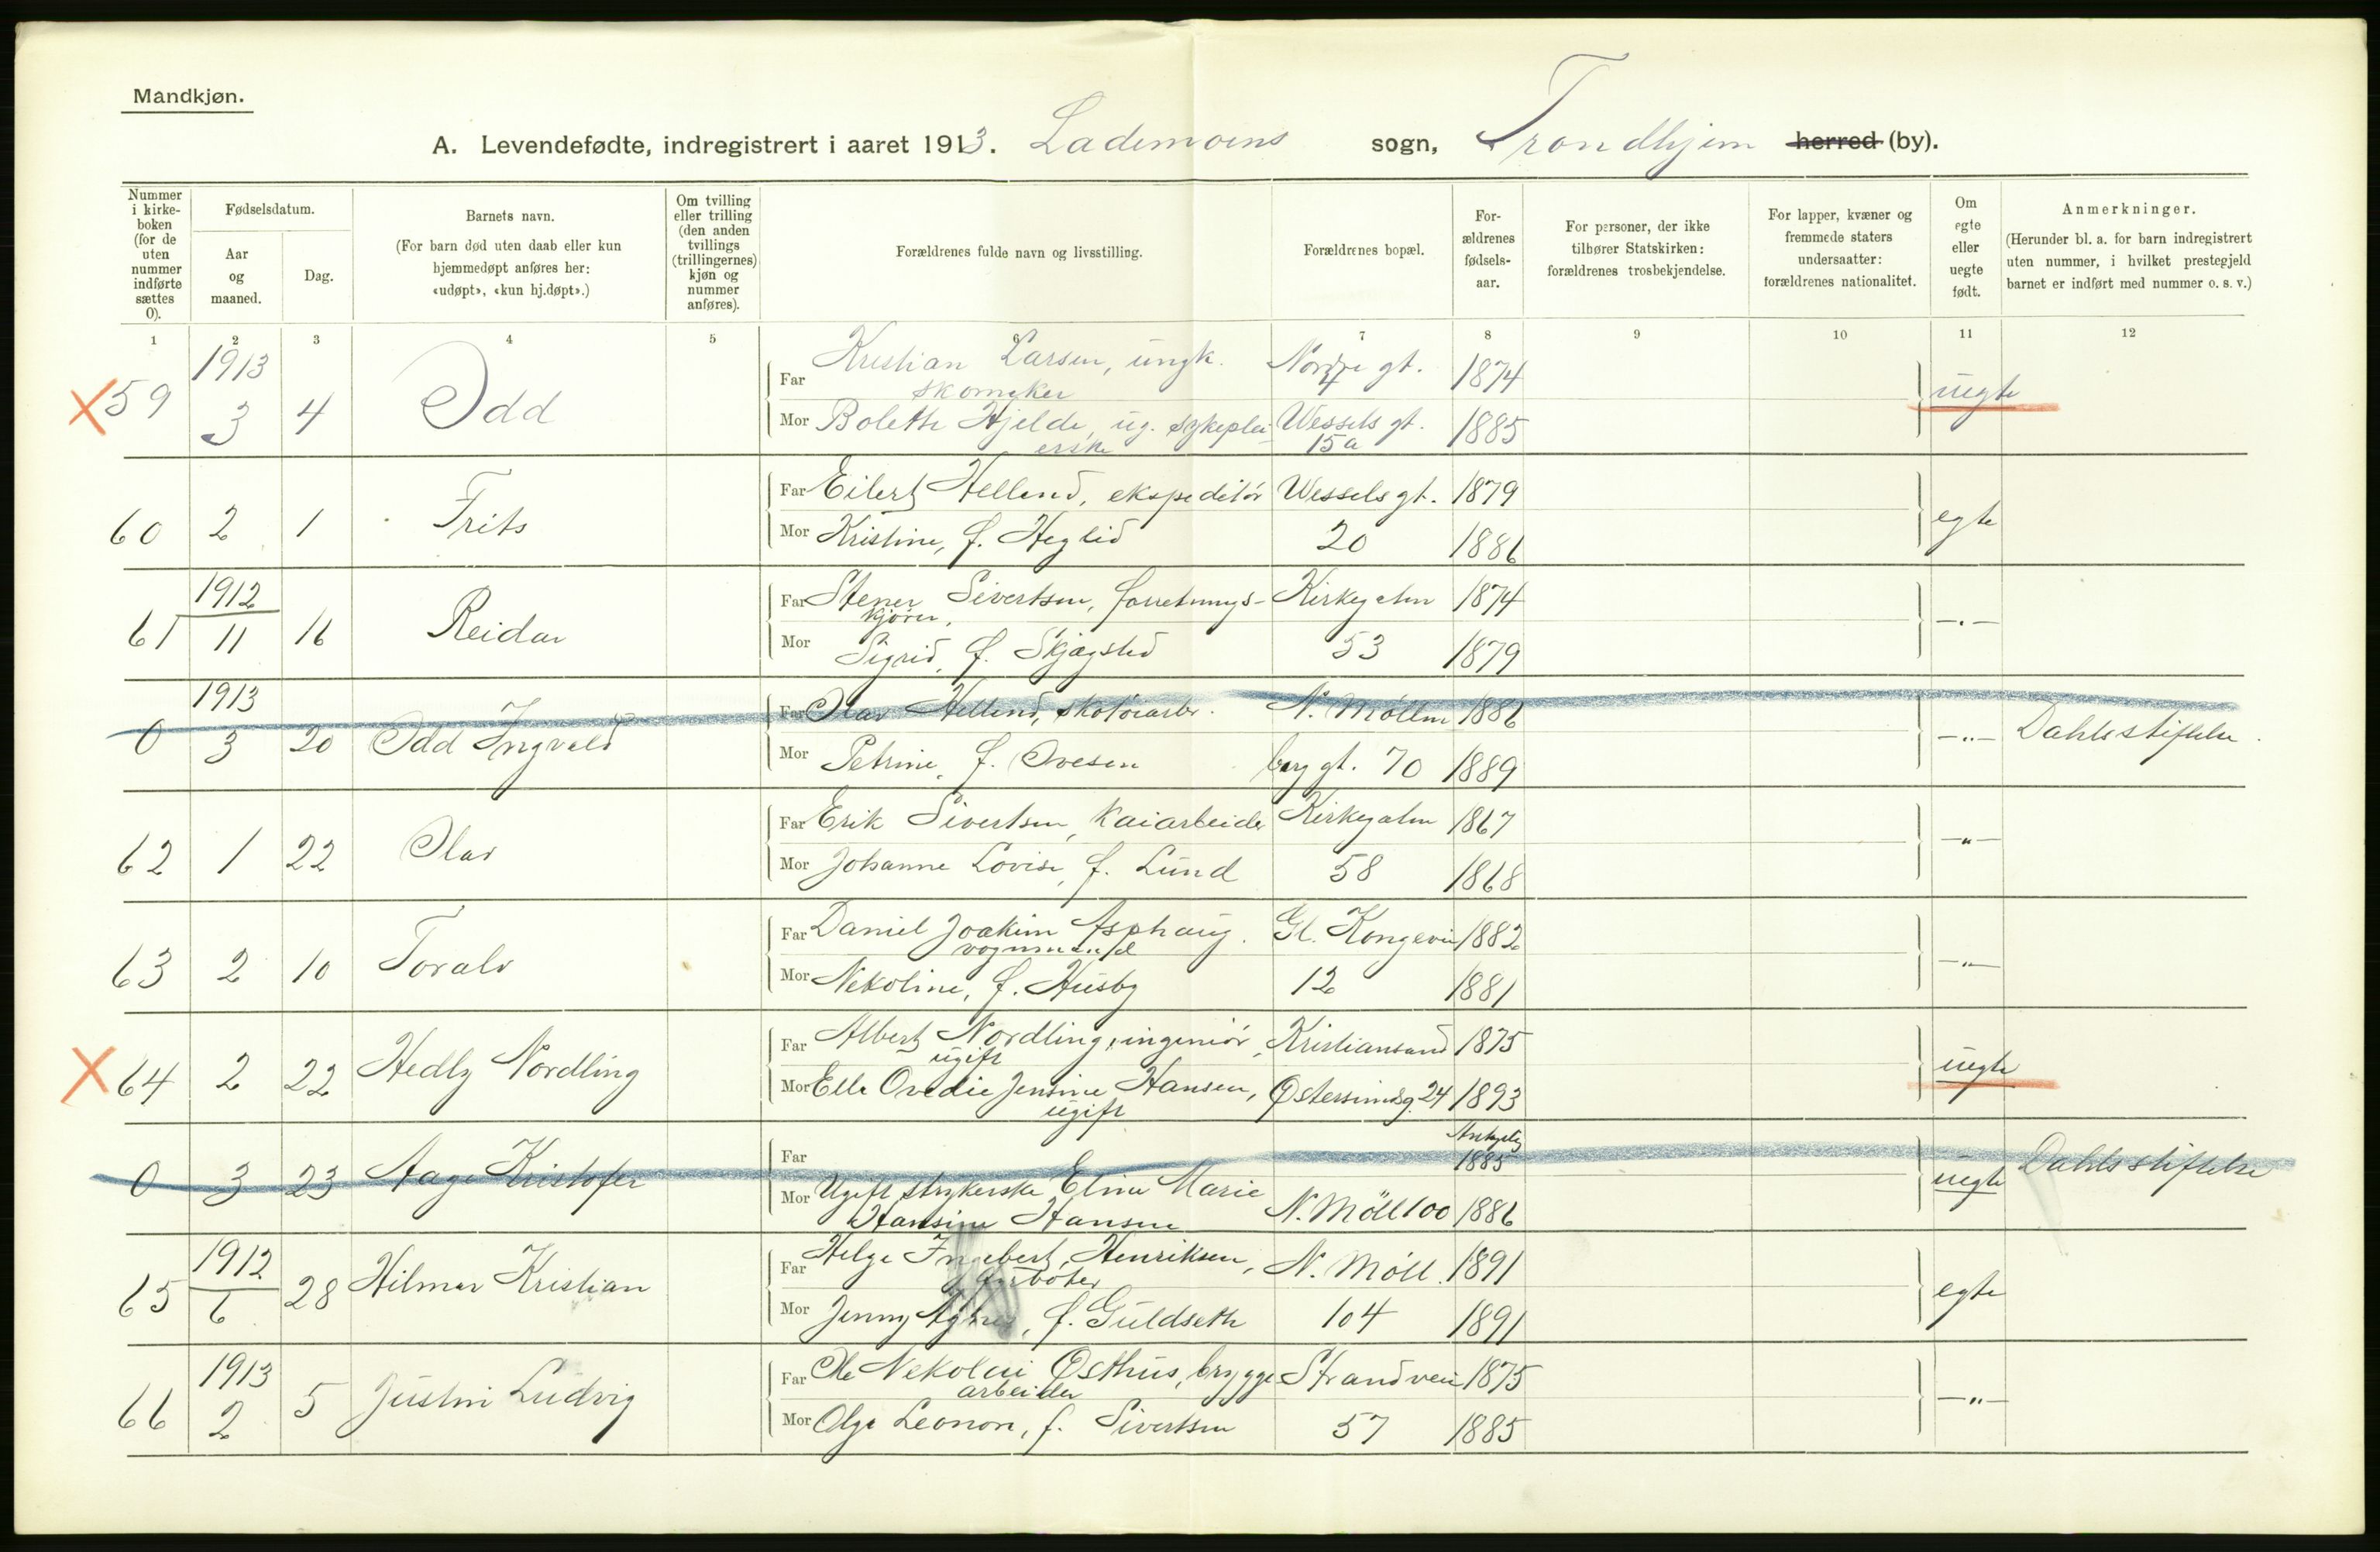 Mandkjøn.
A. Levendefødte, indregistrert i aaret 1913. Lademoens sogn, Trondhjem herred (by).
Nummer i kirke-boken (for de uten nummer indførte sættes 0).
Fødselsdatum.
Aar og maaned.
Dag.
Barnets navn.
(For barn død uten daab eller kun hjemmedøpt anføres her: «udøpt», «kun hj.døpt».)
Om tvilling eller trilling (den anden tvillings (trillingernes) kjøn og nummer anføres).
Forældrenes fulde navn og livsstilling.
Forældrenes bopæl.
For-ældrenes fødsels-aar.
For personer, der ikke tilhører Statskirken: forældrenes trosbekjendelse.
For lapper, kvæner og fremmede staters undersaatter: forældrenes nationalitet.
Om egte eller uegte født.
Anmerkninger.
(Herunder bl. a. for barn indregistrert uten nummer, i hvilket prestegjeld barnet er indført med nummer o. s. v.)
1 2 3 4 5 6 7 8 9 10 11 12
X 59 1913 3 4 Odd
Far Kristian Larsen, ungk. skomaker Nordre gt. 1874
Mor Boleth Hjelde, ug. sykeplei-erske Wessels gt. 15a 1885
uegte
60 2 1 Frits
Far Eilert Helland, ekspeditör Wessels gt. 1879
Mor Kristine, f. Heglid 20 1886
egte
61 1912 11 16 Reidar
Far Stener Sivertsen, forretnings-kjører, Kirkegaten 1874
Mor Sigrid, f. Skjøgsted 53 1879
—"—
0 1913 3 20 Odd Ingvald
Far Olav Helland, skotöiarb. N. Möllen 1886
Mor Petrine, f. Ovesen berg gt. 70 1889
—"— Dahls stiftelse.
62 1 22 Olav
Far Erik Sivertsen, kaiarbeider Kirkegaten 1867
Mor Johanne Lovise, f. Lund 58 1868
—"—
63 2 10 Toralv
Far Daniel Joakim Asphaug. vognmand Gl. Kongevei 1882
Mor Nekoline, f. Husby 12 1881
—"—
X 64 2 22 Hedly Nordling
Far Albert Nordling, ingeniör, ugift Kristiansand 1875
Mor Ella Ovedie Jensine Hansen, ugift Östersundsg. 24 1893
uegte
0 3 23 Aage Kristofer
Far 1885
Mor Ugift strykerske Eline Marie Hansine Hansen N. Möll 100 1886
uegte Dahls stiftelse
65 1912 6 28 Hilmar Kristian
Far Helge Ingebert Henriksen, N. Möll. 1891
Mor Jenny Agnes, f. Guldseth 104 1891
egte
66 1913 2 5 Justin Ludvig
Far Ole Nekolai Östhus, brygge arbeider Strandveien 1875
Mor Olga Leonore, f. Sivertsen 57 1885
—"—